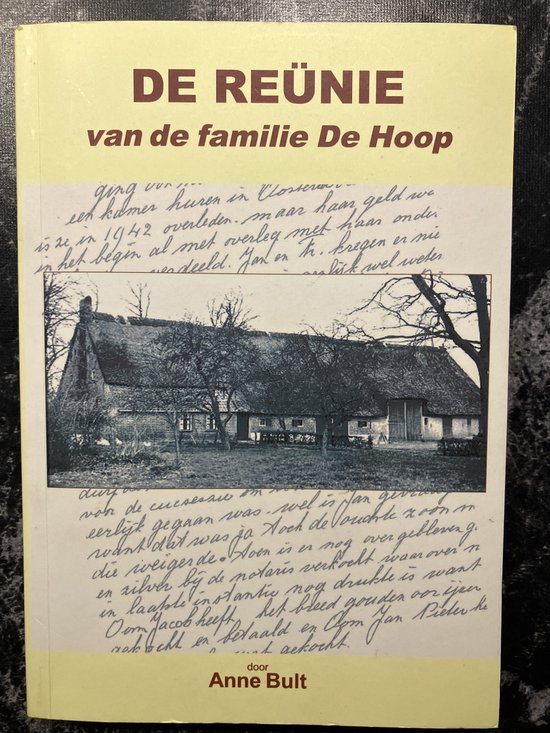 DE REÜNIE
van de familie De Hoop
ging
een kamer huren in
is ze in 1942 overleden. maar haar geld
in het begin al met overleg met haar onder
verdeeld. Jan en Tr. kregen er nie
wel weten
voor de successie om
eerlijk gegaan was. wel is Jan
want dat was ja toch de oudste zoon
die weigerde. Toen is er nog overgebleven g.
en zilver bij de notaris verkocht waarover n
in laatste instantie nog drukte is want
Oom Jacob heeft, het breed gouden oor ijzer
gekocht en betaald en Oom Jan Pieter
gekocht.
door
Anne Bult